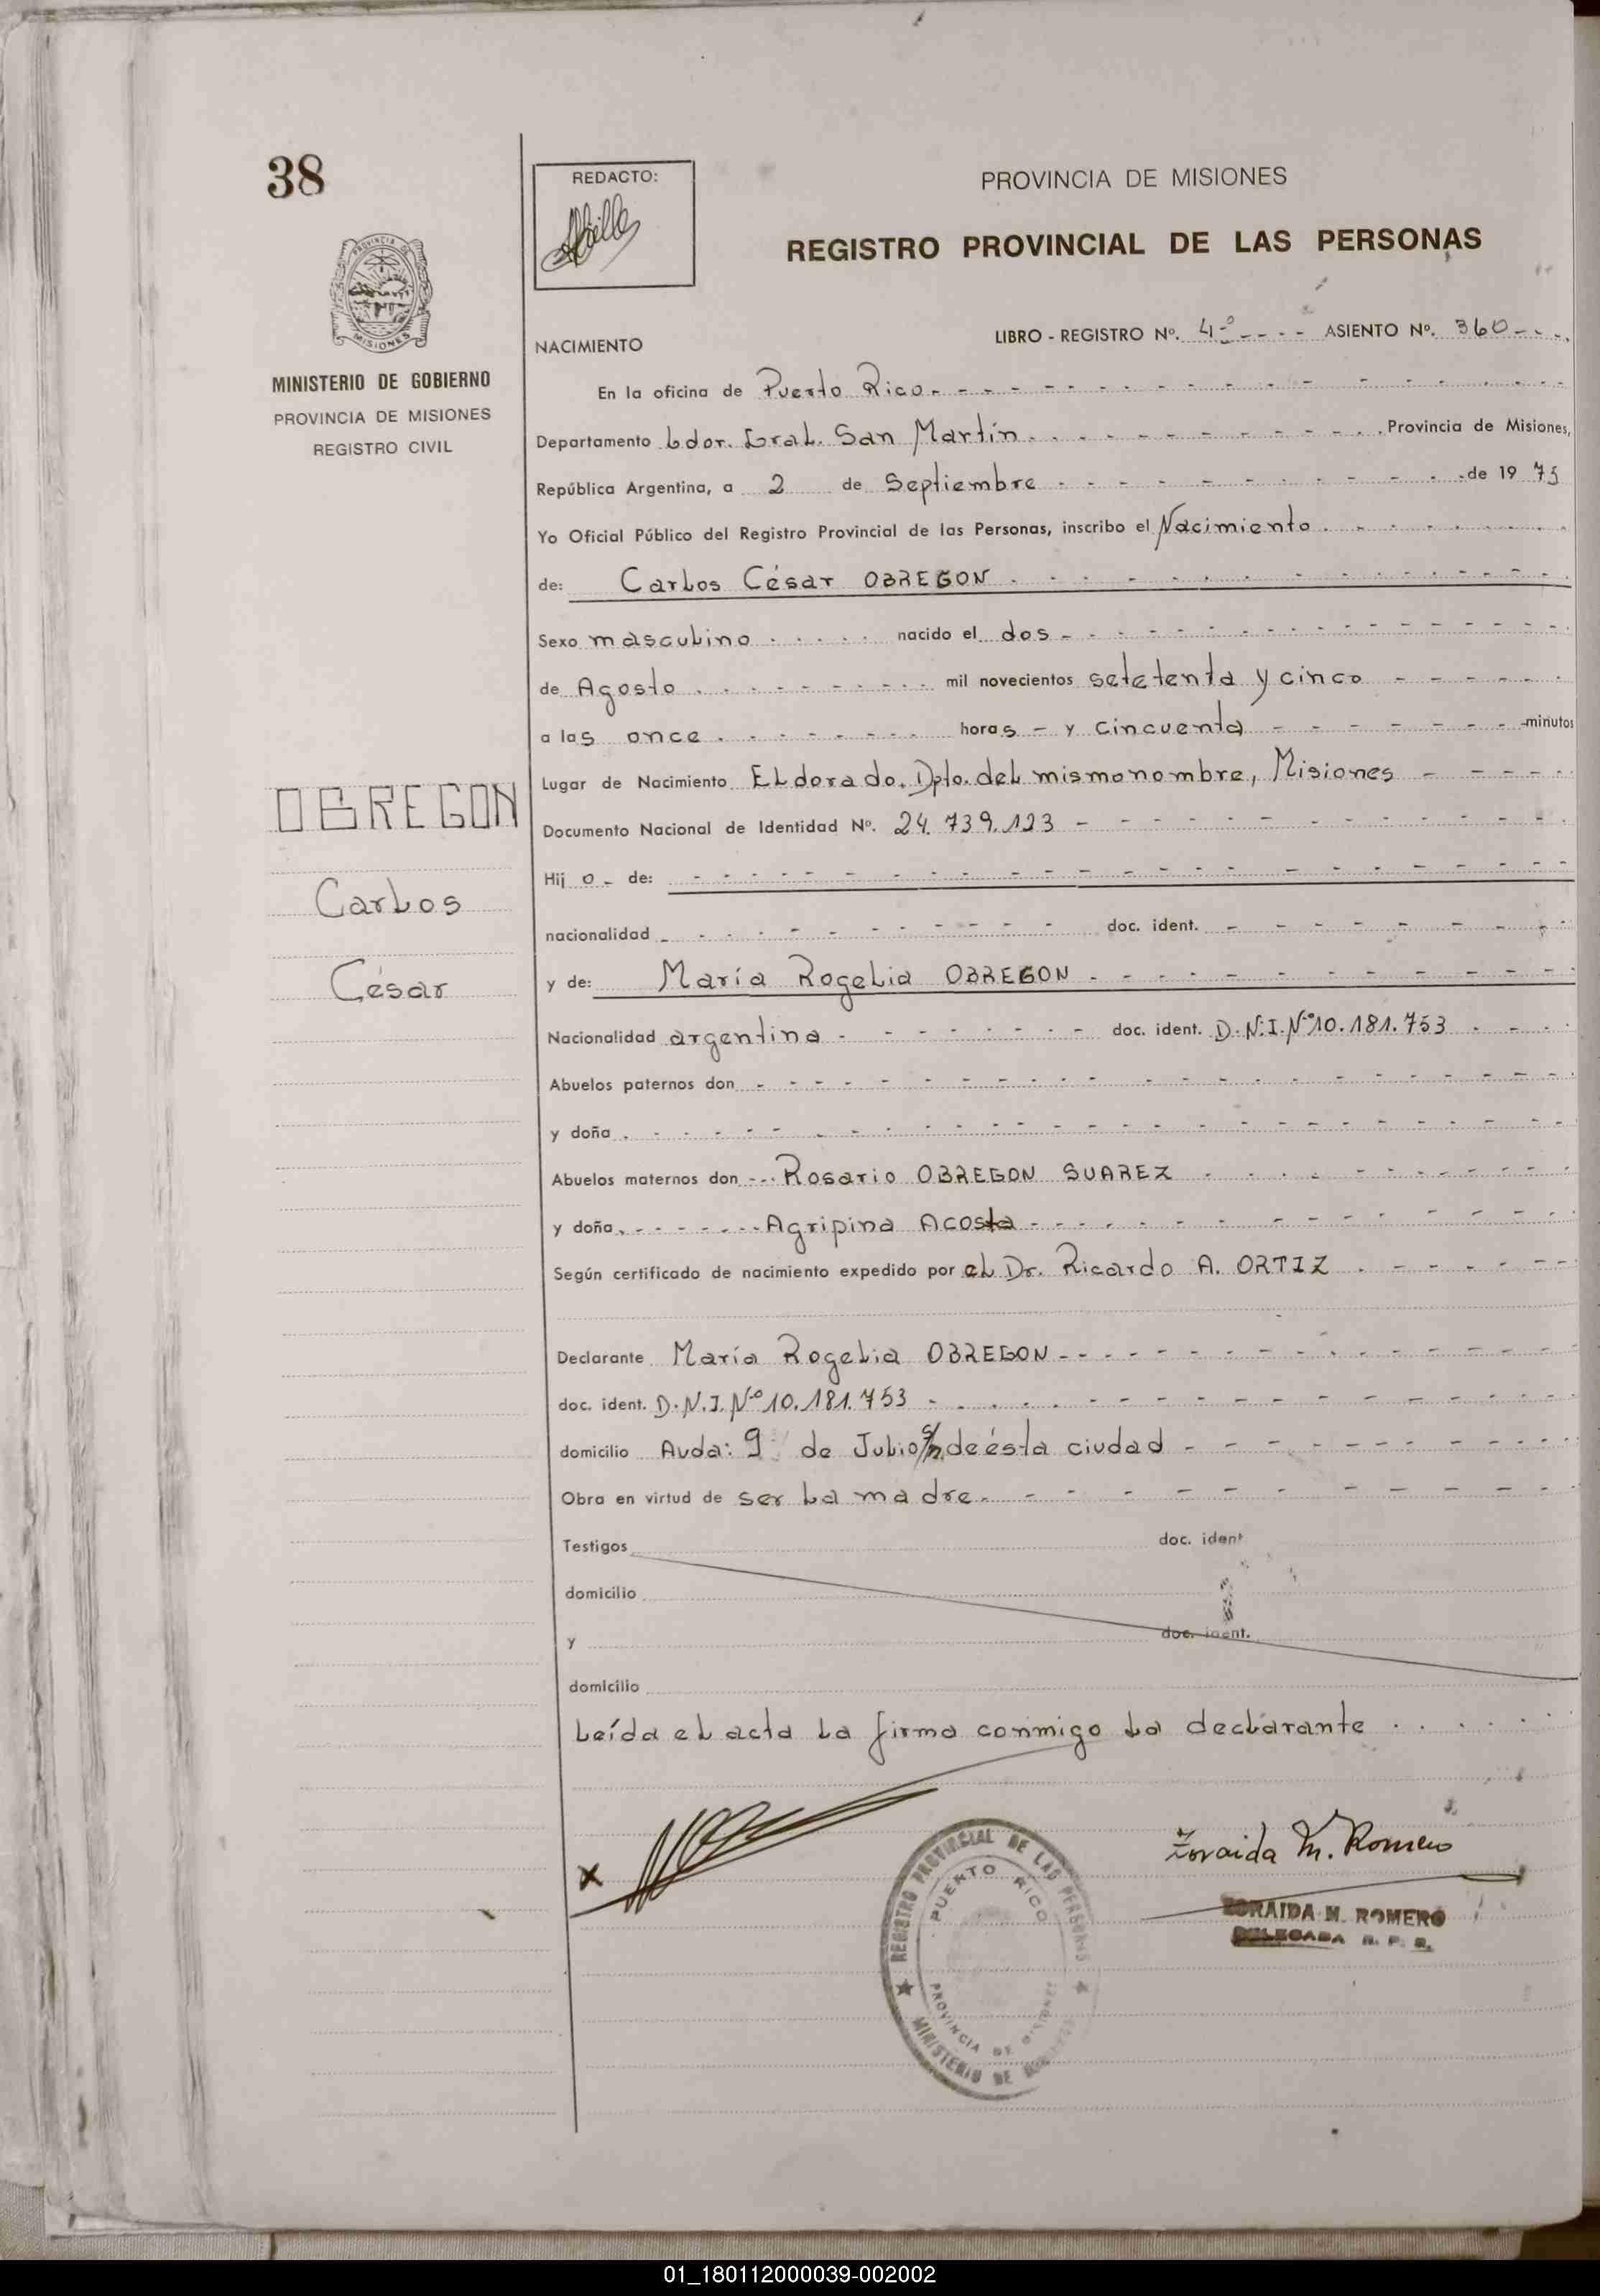 38
REDACTO:
PROVINCIA DE MISIONES
REGISTRO PROVINCIAL DE LAS PERSONAS
PROVINCIA DE
MISIONES
MINISTERIO DE GOBIERNO
PROVINCIA DE MISIONES
REGISTRO CIVIL
LIBRO - REGISTRO Nº. 4º ASIENTO Nº. 360
NACIMIENTO
En la oficina de Puerto Rico
Departamento Ldor. Gral. San Martín Provincia de Misiones,
República Argentina, a 2 de Septiembre de 19 75
Yo Oficial Público del Registro Provincial de las Personas, inscribo el Nacimiento
de: Carlos César OBREGON
Sexo masculino nacido el dos
de Agosto mil novecientos setetenta y cinco
a las once horas y cincuenta minutos
Lugar de Nacimiento ELdorado. Dpto. del mismo nombre, Misiones
Documento Nacional de Identidad Nº. 24.739.123
Hij o de:
nacionalidad doc. ident.
y de: María Rogelia OBREGON
Nacionalidad argentina doc. ident. D.N.I. Nº 10.181.753
Abuelos paternos don
y doña
Abuelos maternos don Rosario OBREGON SUAREZ
y doña Agripina Acosta
Según certificado de nacimiento expedido por el Dr. Ricardo A. ORTIZ
Declarante María Rogelia OBREGON
doc. ident. D.N.I. Nº 10.181.753
domicilio Avda: 9 de Julio s/n de ésta ciudad
Obra en virtud de ser la madre.
Testigos doc. ident
domicilio
y doc. ident.
domicilio
Leída el acta la firma conmigo la declarante
OBREGON
Carlos
César
x
Zoraida M. Romero
ZORAIDA M. ROMERO
DELEGADA R. P. P.
REGISTRO PROVINCIAL DE LAS PERSONAS
PUERTO RICO
PROVINCIA DE MISIONES
MINISTERIO DE
01_180112000039-002002